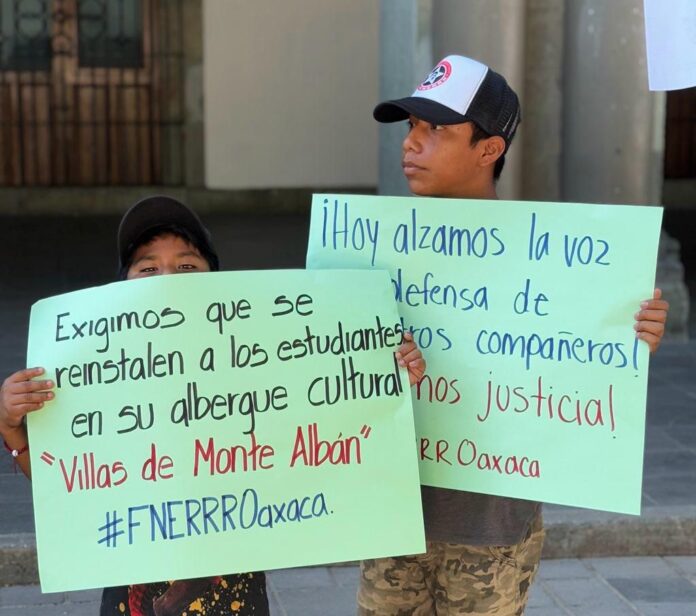 Exigimos que se
reinstalen a los estudiantes
en su albergue cultural
"Villas de Monte Albán"
#FNERRROaxaca.
¡Hoy alzamos la voz
defensa de
compañeros!
justicia!
Oaxaca